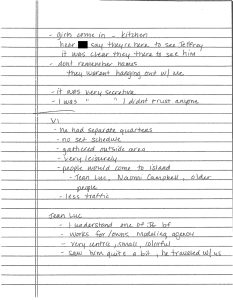 - girls come in - kitchen
hear say they're here to see Jeffrey
it was clear they there to see him
- dont remember names
they werent hanging out w/ me
- it was very secretive
- I was " " I didnt trust anyone
VI
- he had separate quarters
- no set schedule
- gathered outside area
- very leisurely
- people would come to island
- Jean Luc, Naomi Campbell, older
people
- less traffic
Jean Luc
- I understand one of JE bf
- works for/owns modeling agency
- very , small, colorful
- saw him quite a bit, he traveled w/ us